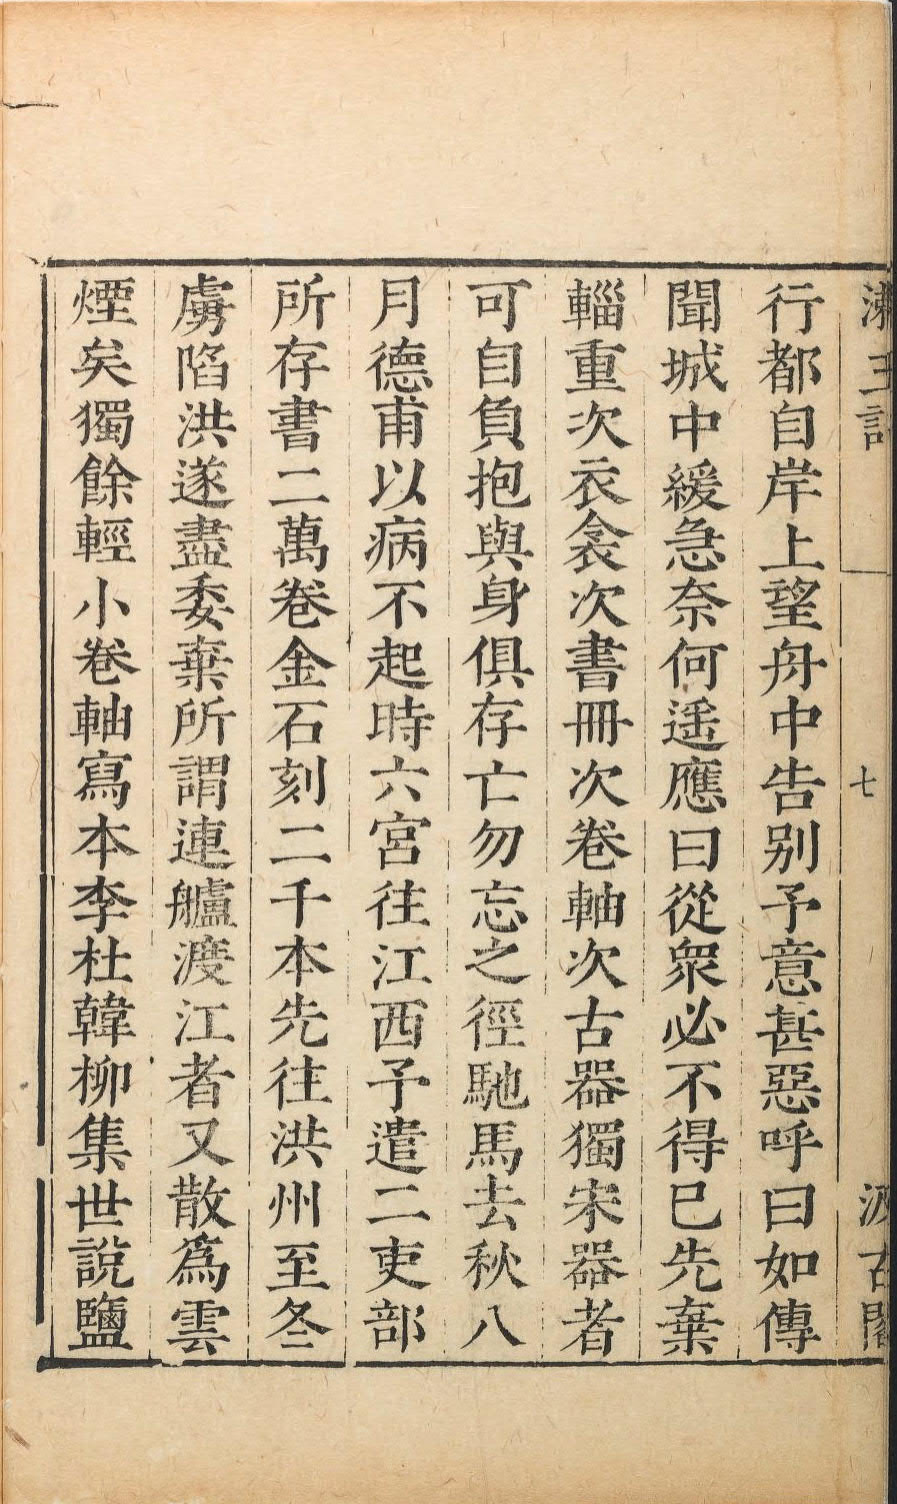 漱玉詞
七
汲古閣
行都自岸上望舟中告別予意甚惡呼曰如傳
聞城中緩急奈何遥應曰從衆必不得已先棄
輜重次衣衾次書冊次卷軸次古器獨宋器者
可自負抱與身俱存亡勿忘之徑馳馬去秋八
月德甫以病不起時六宮往江西予遣二吏部
所存書二萬卷金石刻二千本先往洪州至冬
虜陷洪遂盡委棄所謂連艫渡江者又散爲雲
煙矣獨餘輕小卷軸寫本李杜韓柳集世說鹽